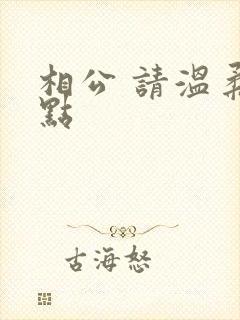 相公 請溫柔
點
古海怒